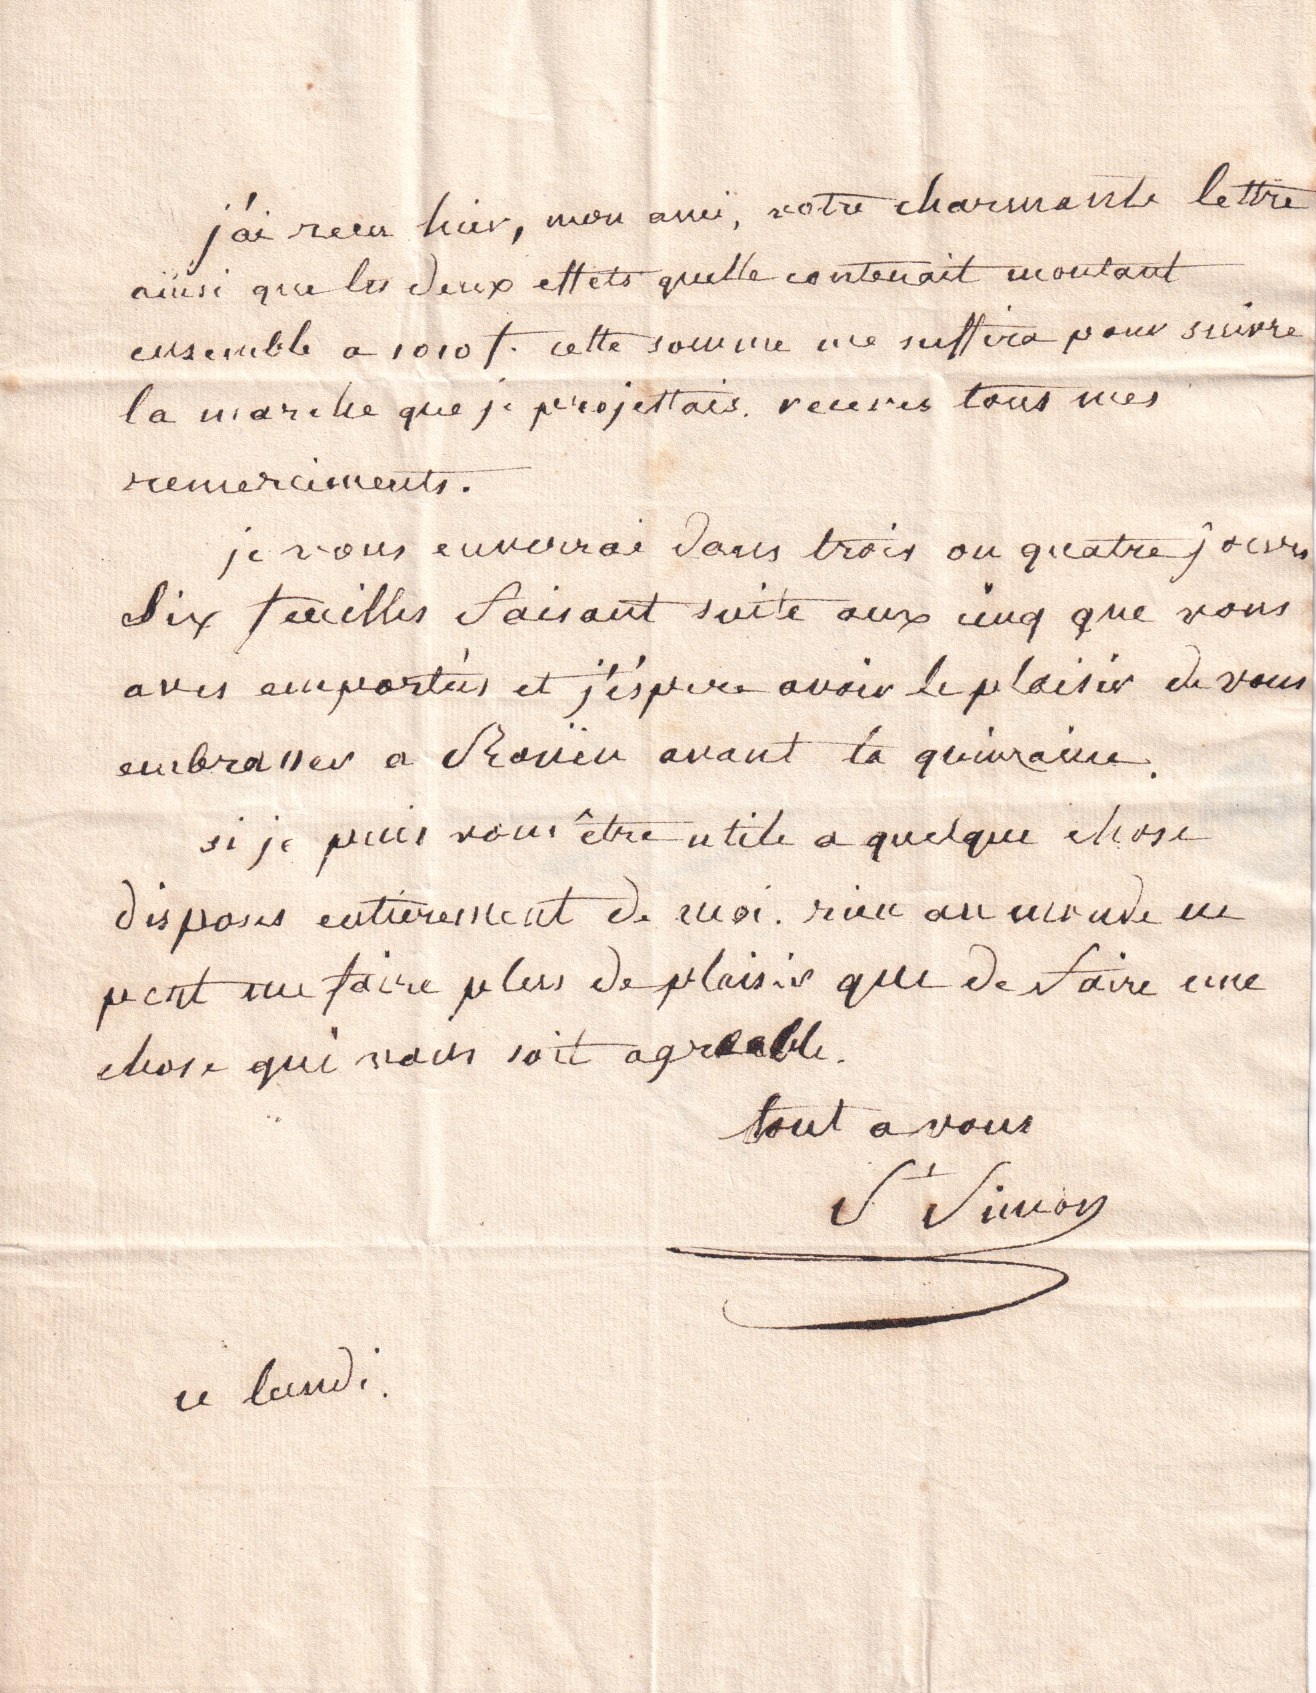 j'ai recu hier, mon ami, votre charmante lettre
ainsi que les deux effets quelle contenait montant
ensemble a 1010 f. cette somme me suffira pour suivre
la marche que je projettais. receves tous mes
remerciments.
je vous enverrai dans trois ou quatre jours
Six feuilles faisant suite aux cinq que vous
aves emportés et j'éspere avoir le plaisir de vous
embrasser a Roüen avant la quinzaine.
si je puis vous être utile a quelque chose
disposes entierement de moi. rien au monde ne
peut me faire plus de plaisir que de faire une
chose qui vous soit agreable.
tout a vous
St Simon
ce lundi.